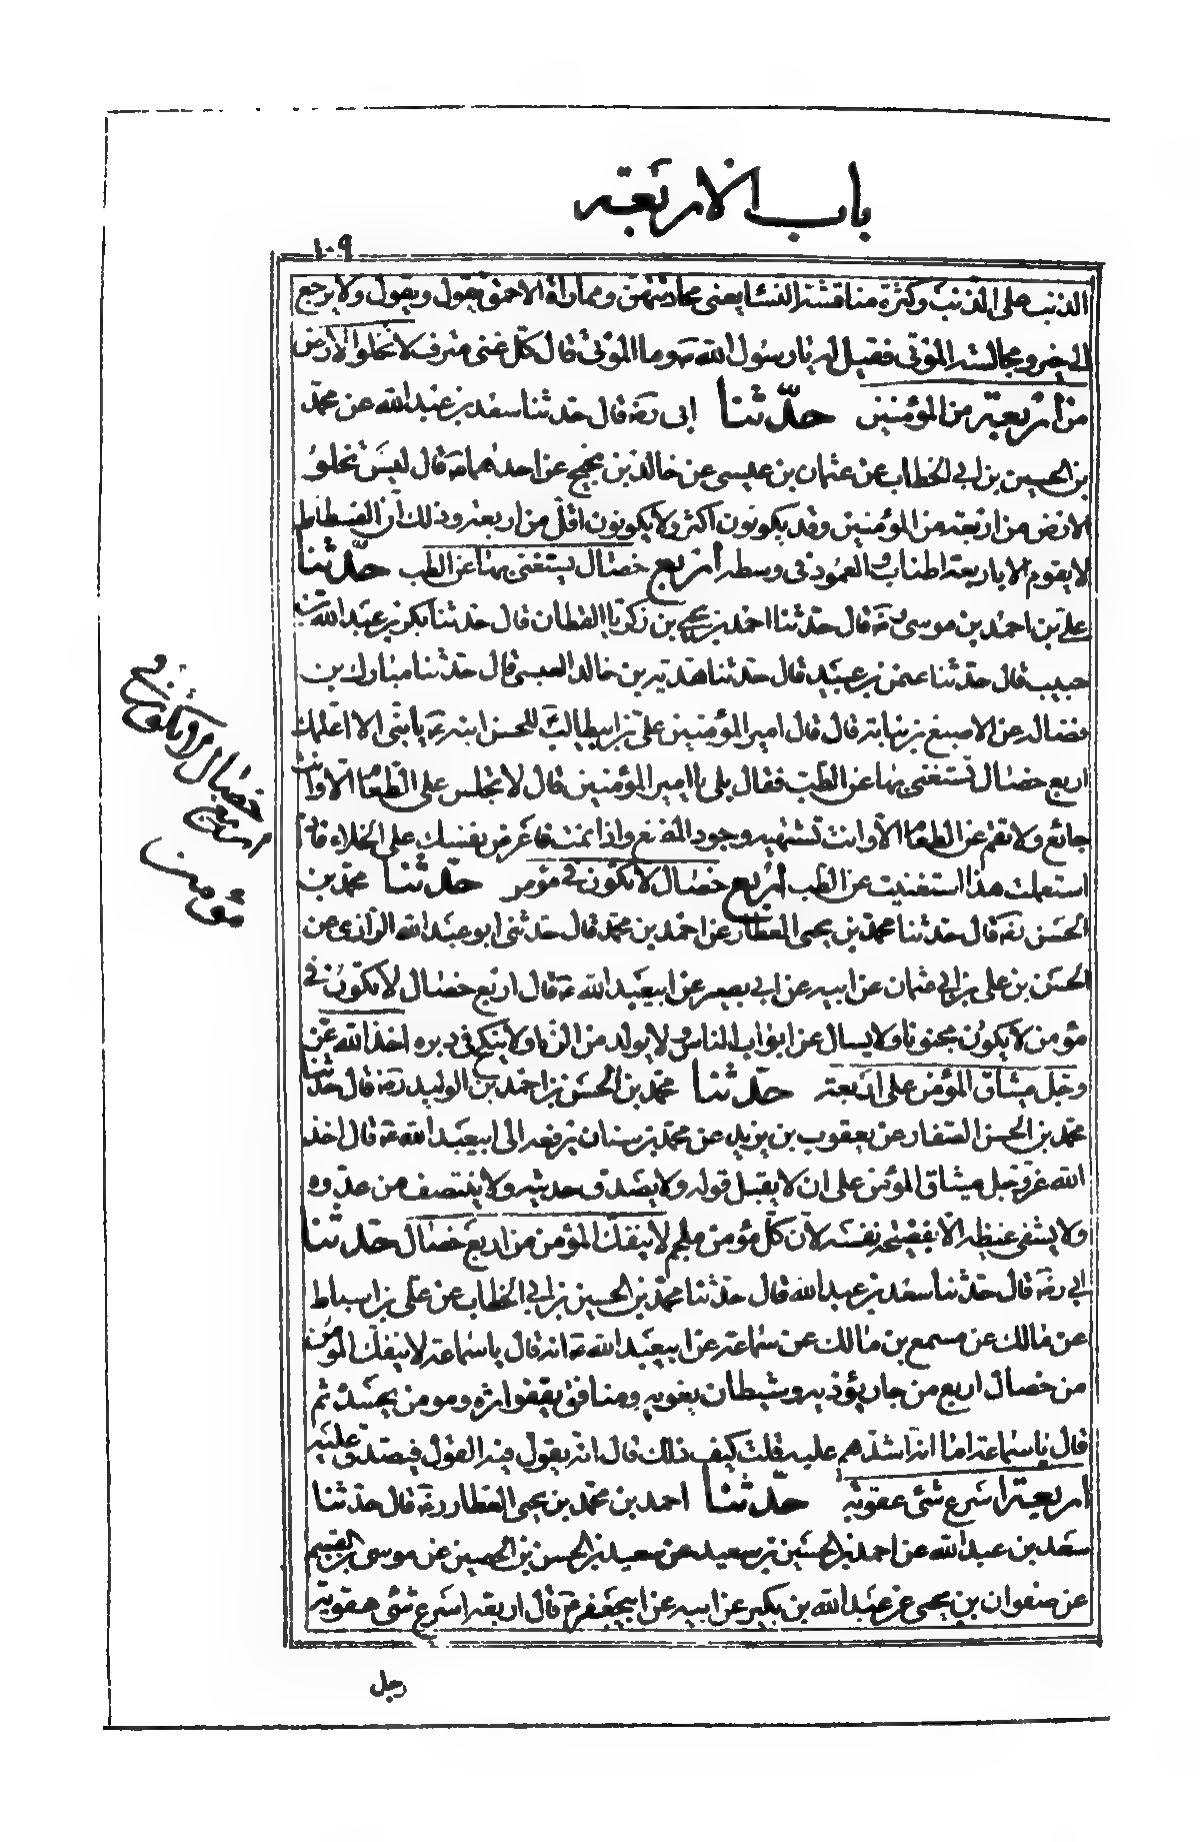 باب الاربعة
١٠٩
الذنب على الذنب وكثرة مناقشة النسا يعنى محادثتهن ومماراة الاحمق يقول ويقول ولا يرجع
الى خير ومجالسة الموتى فقيل له يا رسول الله ص وما الموتى قال كل غنى مترف لا تخلوا الارض
من اربعة من المؤمنين حدثنا ابى ره قال حدثنا سعد بن عبد الله عن محمد
بن الحسين بن ابى الخطاب عن عثمان بن عيسى عن خالد بن نجيح عن احدهما ع قال ليس تخلو
الارض من اربعة من المؤمنين وقد يكونون اكثر ولا يكونون اقل من اربعة وذلك ان الفسطاط
لا يقوم الا باربعة اطناب والعمود فى وسطه اربع خصال يستغنى بها عن الطب حدثنا
على بن احمد بن موسى ره قال حدثنا احمد بن يحيى بن زكريا القطان قال حدثنا بكر بن عبد الله بن
حبيب قال حدثنا عثمن بن عبيد قال حدثنا هدبة بن خالد العبسى قال حدثنا مبارك بن
فضالة عن الاصبغ بن نباتة قال قال امير المؤمنين على بن ابيطالب للحسن ابنه ع يا بنى الا اعلمك
اربع خصال تستغنى بها عن الطب فقال بلى يا امير المؤمنين قال لا تجلس على الطعام الا وانت
جائع ولا تقم عن الطعام الا وانت تشتهيه وجود المضغ واذا نمت فاعرض نفسك على الخلاء فاذا
استعملت هذا استغنيت عن الطب اربع خصال لا تكون فى مؤمن حدثنا محمد بن
الحسن ره قال حدثنا محمد بن يحيى العطار عن احمد بن محمد قال حدثنى ابو عبد الله الرازى عن
الحسن بن على بن ابى عثمان عن ابيه عن ابى بصير عن ابيعبد الله ع قال اربع خصال لا تكون فى
مؤمن لا يكون مجنونا ولا يسال عن ابواب الناس ولا يولد من الزنا ولا ينكح فى دبره اخذ الله عز
وجل ميثاق المؤمن على اربعة حدثنا محمد بن الحسن بن احمد بن الوليد ره قال حدثنا
محمد بن الحسن الصفار عن يعقوب بن يزيد عن محمد بن سنان يرفعه الى ابيعبد الله ع قال اخذ
الله عز وجل ميثاق المؤمن على ان لا يقبل قوله ولا يصدق حديثه ولا ينتصف من عدوه
ولا يشفى غيظه الا بفضيحة نفسه لان كل مؤمن ملجم لا ينفك المؤمن من اربع خصال حدثنا
ابى ره قال حدثنا سعد بن عبد الله قال حدثنا محمد بن الحسين بن ابى الخطاب عن على بن اسباط
عن مالك عن مسمع بن مالك عن سماعة عن ابيعبد الله ع انه قال يا سماعة لا ينفك المؤمن
من خصال اربع من جار يؤذيه وشيطان يغويه ومنافق يقفوا اثره ومومن يحسده ثم
قال يا سماعة اما انه اشدهم عليه قلت كيف ذلك قال انه يقول فيه القول فيصدق عليه
اربعة اسرع شئى عقوبة حدثنا احمد بن محمد بن يحيى العطار ره قال حدثنا
سعد بن عبد الله عن احمد بن الحسين بن سعيد عن سعيد بن الحسن بن الحصين عن موسى بن القسم
عن صفوان بن يحيى عن عبد الله بن بكير عن ابيه عن ابيجعفر ع قال اربعة اسرع شئى عقوبة
رجل
اربع
خصال لا تكون فى
مؤمن